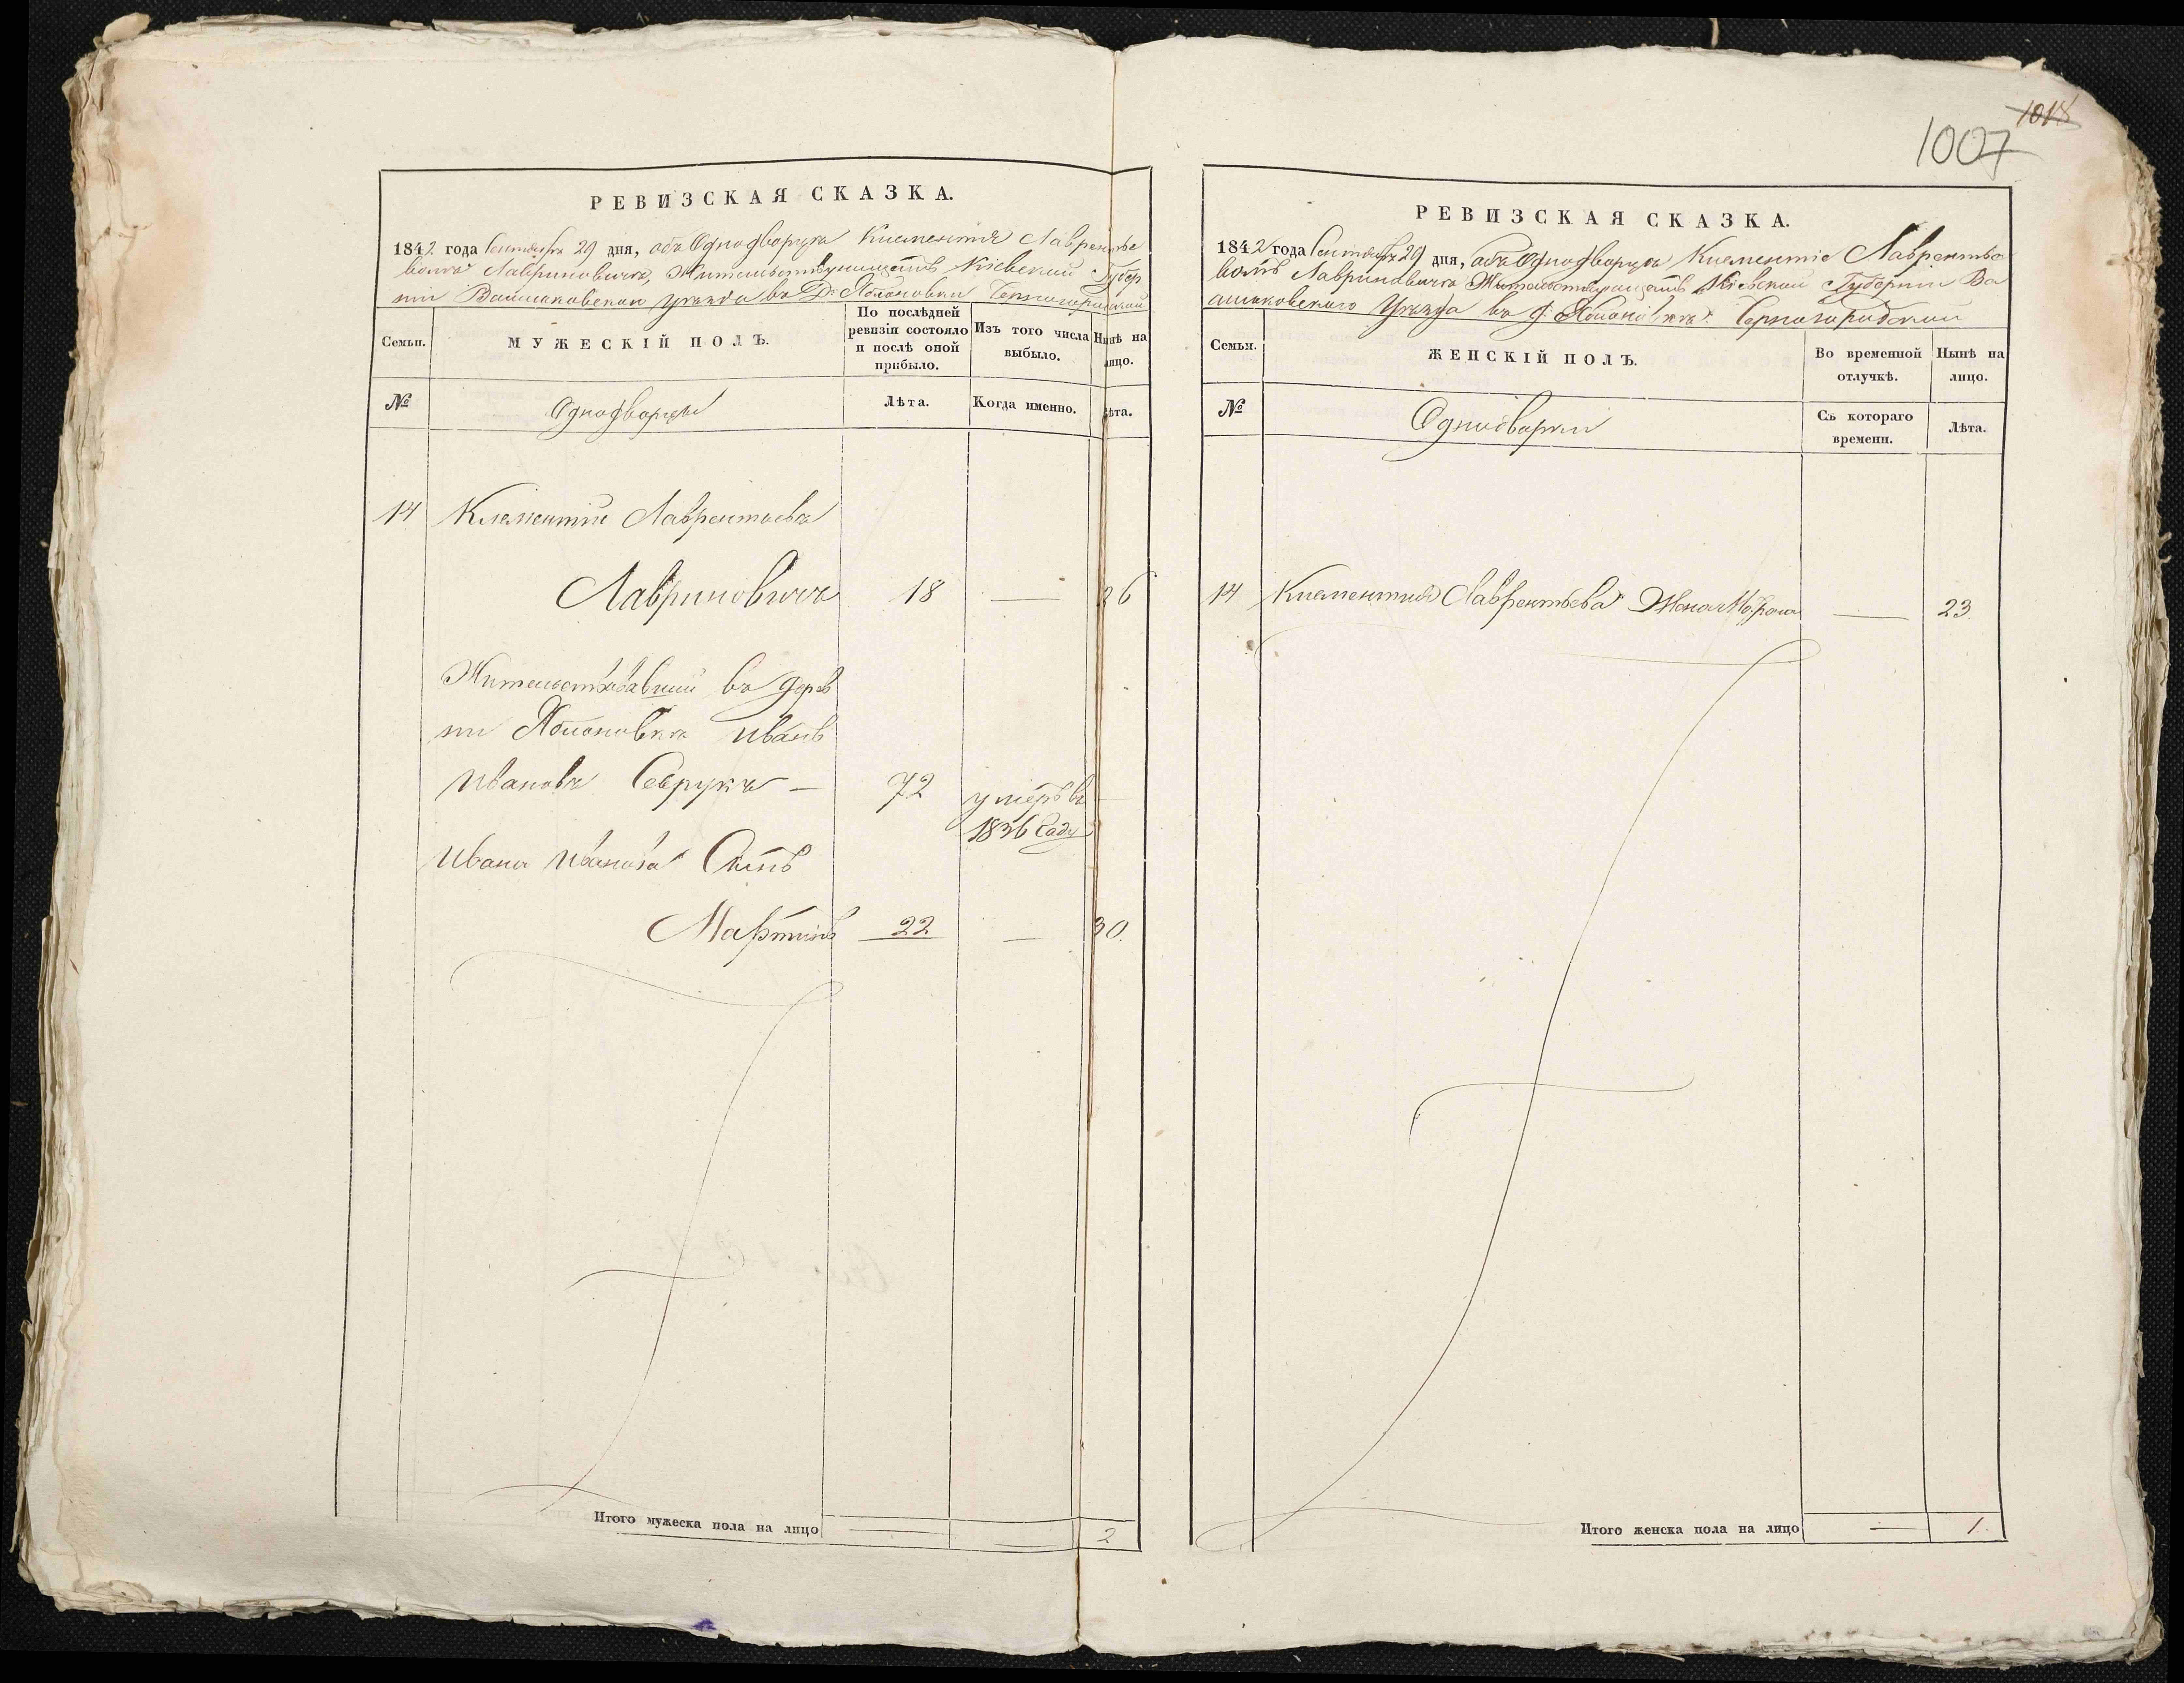 1018
1007
РЕВИЗСКАЯ СКАЗКА.
1842 года Сентября 29 дня, объ Однодворцѣ Климентіѣ Лаврентье
вомъ Лавриновичѣ, Жительствующемъ Кіевской Губер
ніи Васильковскаго уѣзда въ Д. Яблоновки
Семьи.
МУЖЕСКІЙ ПОЛЪ.
По послѣдней ревизіи состояло и послѣ оной прибыло.
Изъ того числа выбыло.
Нынѣ на лицо.
№
Однодворцы
Лѣта.
Когда именно.
Лѣта.
14 Климентій Лаврентьевъ
Лавриновичъ 18 — 26
Жительствовавшій въ дерев
ни Яблоновка Иванъ
Ивановъ Севрукъ — 72 умеръ въ
1836 Году
Ивана Иванова Сынъ
Мартинъ 22 — 30.
Итого мужеска пола на лицо 2
РЕВИЗСКАЯ СКАЗКА.
1842 года Сентября 29 дня, объ Однодворцѣ Климентіѣ Лаврентье
вомъ Лавриновичѣ Жительствующемъ Кіевской Губерніи Ва
сильковскаго Уѣзда въ д. Яблоновкѣ
Семьи.
ЖЕНСКІЙ ПОЛЪ.
Во временной отлучкѣ.
Нынѣ на лицо.
№
Однодворки
Съ котораго времени.
Лѣта.
14 Климентія Лаврентьева Жена — 23
Итого женска пола на лицо — 1.